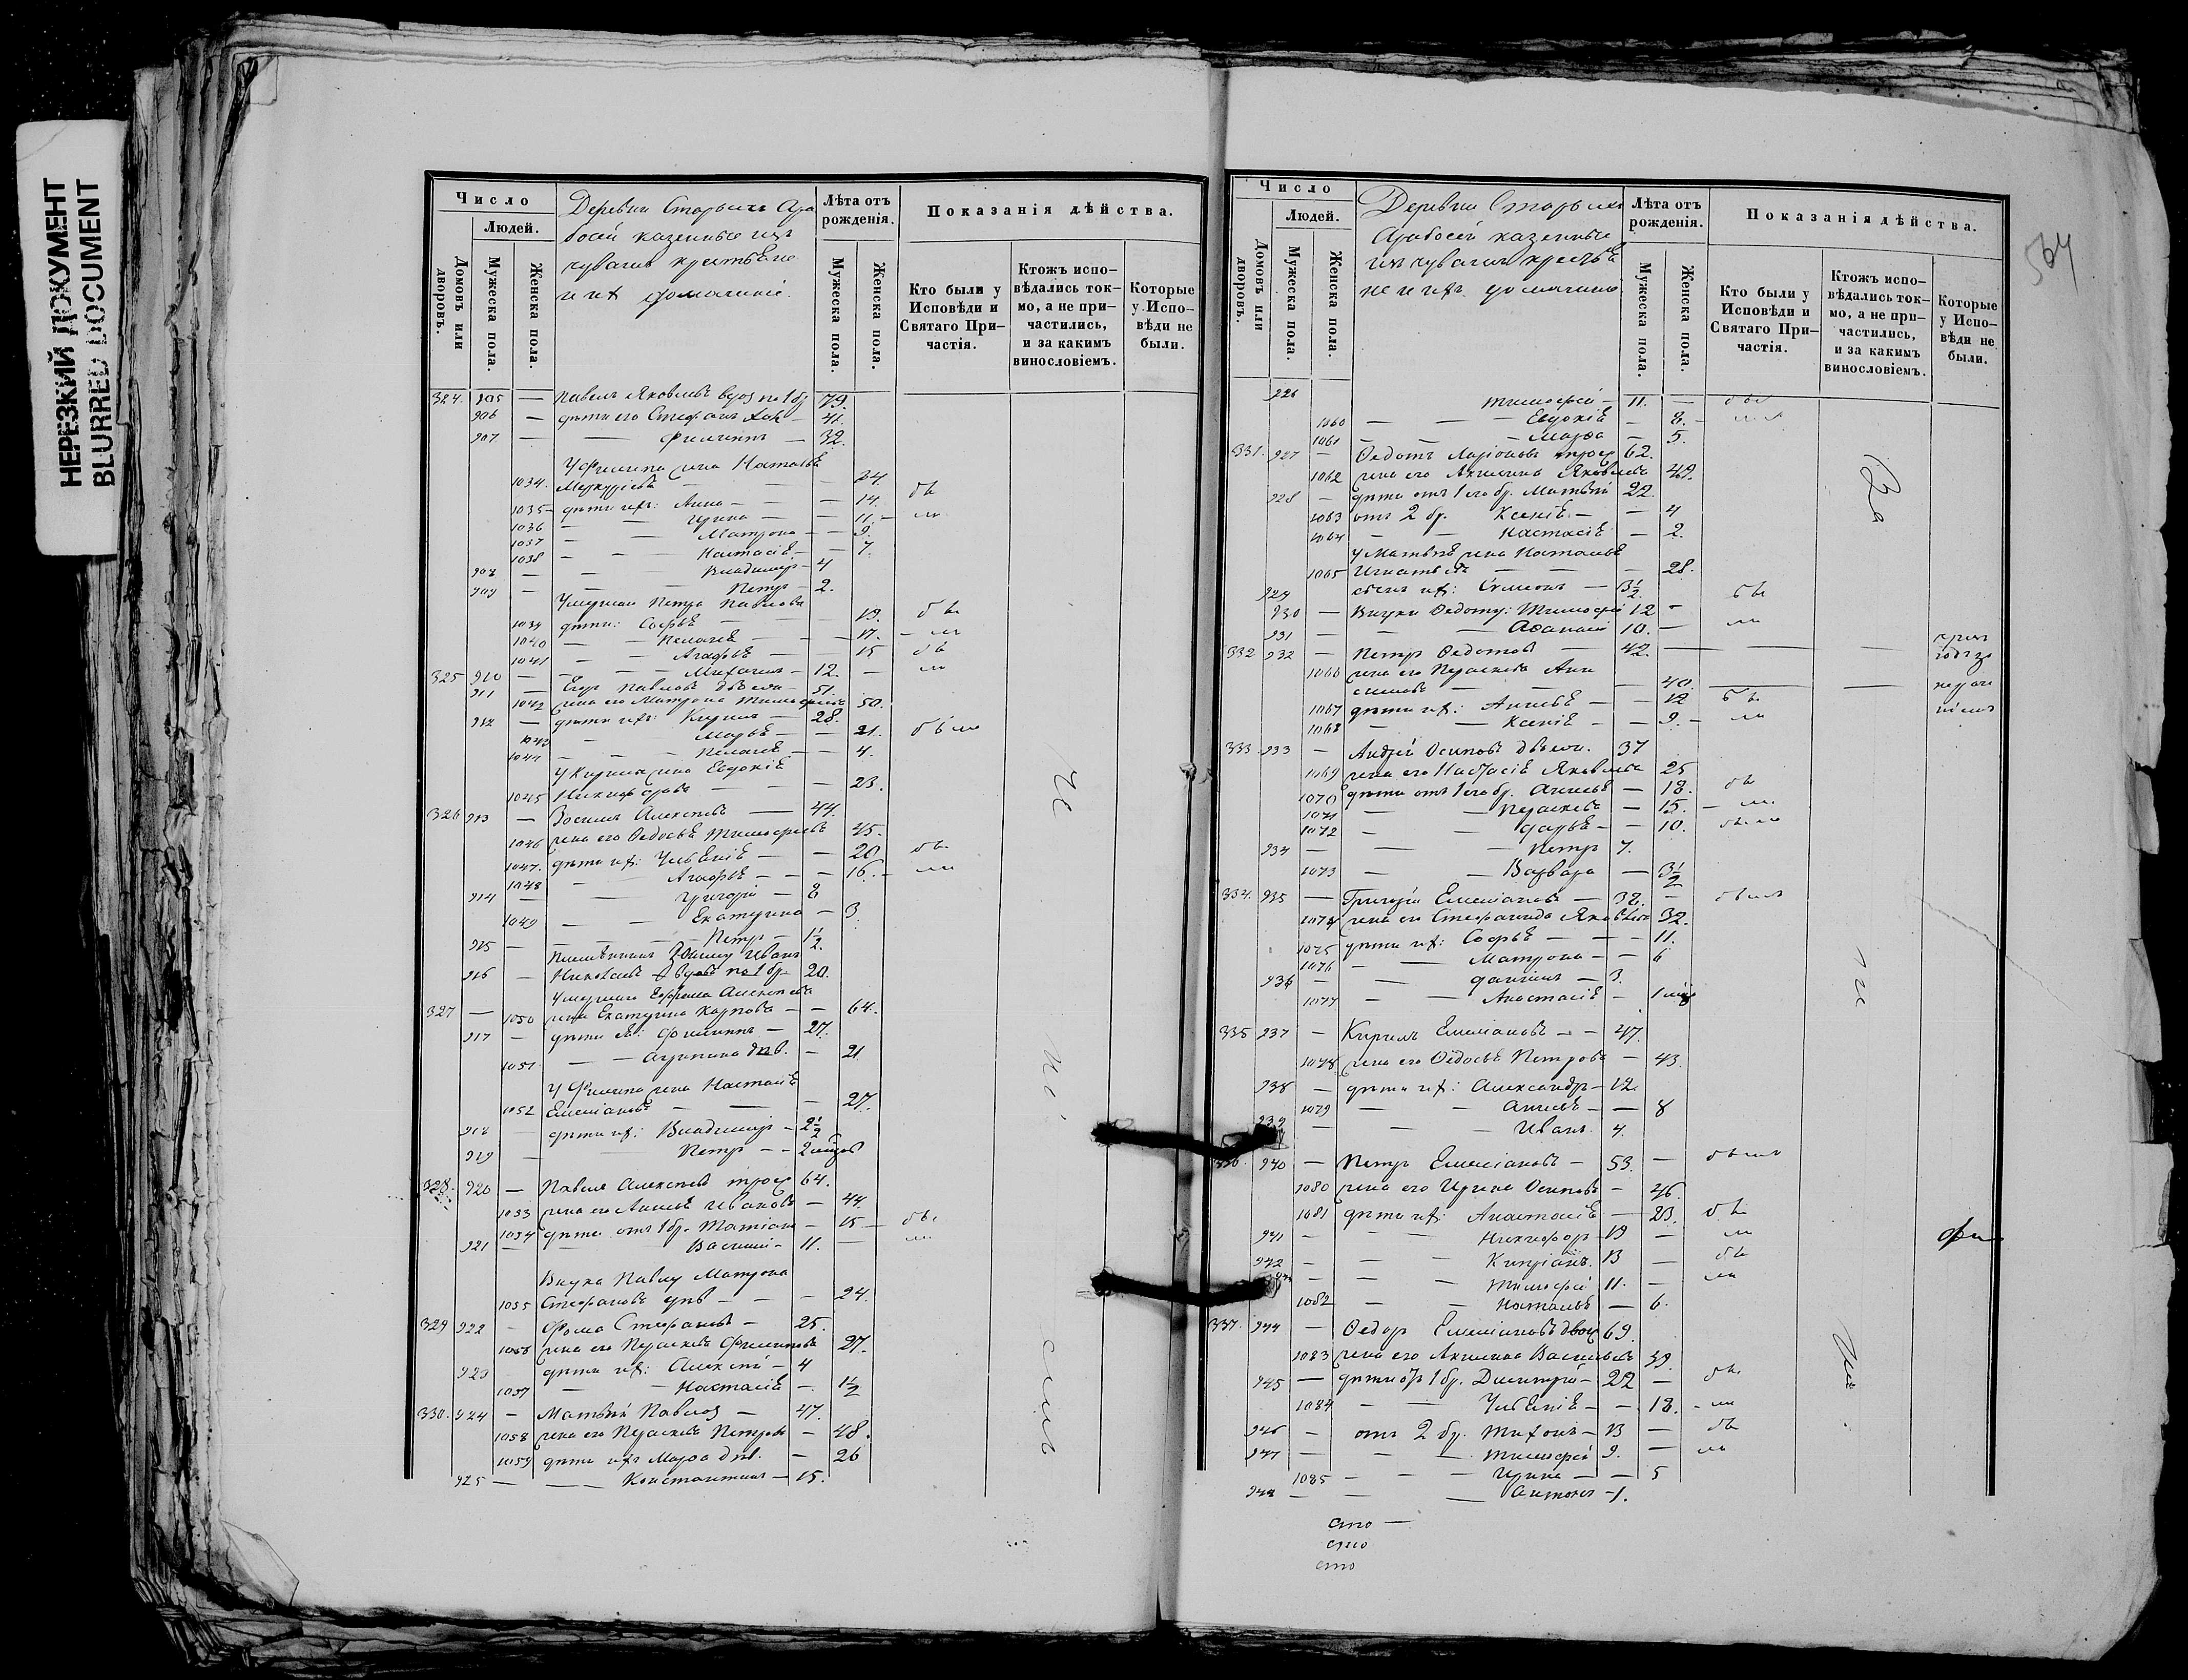 НЕРЕЗКИЙ ДОКУМЕНТ
BLURRED DOCUMENT
Число
Людей.
Домовъ или дворовъ.
Мужеска пола.
Женска пола.
Деревни Старыхъ Ара
босей казенные изъ
чувашъ крестьяне
и ихъ домашніе.
Лѣта отъ рожденія.
Мужеска пола.
Женска пола.
Показанія дѣйства.
Кто были у Исповѣди и Святаго При-частія.
Ктожъ испо-вѣдались ток-мо, а не при-частились, и за какимъ винословіемъ.
Которые у Испо-вѣди не были.
324. 905 — Павелъ Яковлевъ вдов по 1 бр 79.
906 — дѣти его Стефанъ 41.
907 — — Филиппъ — 32.
У Филиппа жена Наталья
1034. Меркуріева — — 34.
1035 — дѣти ихъ: Анна — — 14. бы
1036 — — Ирина — — 11. — ли
1037 — — Матрона — — 9.
1038 — — Настасія — — 7.
908 — — Владимір — 4
909 — — Петръ — 2.
Умершаго Петра Павлова
1039 дѣти: Софья — — 19. бы
1040 — Пелагея — — 17. — ли
1041 — — Агафья — 15 бы
910 — — — Михаилъ — 12. — ли
325 911 — Егоръ Павловъ двоеж — 51.
1042 жена его Матрона Тимофеева 50.
912 — дѣти ихъ: Кирилъ — 28.
1043 — Марья — — 21. были
1044 — — Пелагея — — 4.
У Кирила жена Евдокія
1045 Никифорова — — — 23.
326 913 — Василій Алексеевъ — 44.
1046 жена его Федосья Тимофеева 45.
1047. дѣти ихъ: Ульянія — — 20 бы
1048 — Агафья — — 16. — ли
914 — — Григорій — 8
1049 — — Екатерина — 3.
915 — — — — Петръ — 1½.
Племянникъ Иванъ
916 — Николаевъ вдовъ по 1 бр. 20.
Умершаго Ефрема Алексеева
327 — 1050 жена Екатерина Карпова — — 64.
917 — дѣти ея: Филиппъ — 27.
1051 — — Агрипина дѣв. — 21
У Филиппа жена Настасія
1052 Емеліанова — — — 27.
918 — дѣти ихъ: Владиміръ — 2½
919 — Петръ — — 2 мѣсяц
328. 920 — Павелъ Алексеевъ троеж 64.
1053 жена его Анисья Иванова — 44.
1054 дѣти отъ 1 бр. Татіана — 15 — бы
921 — — Василій — 11. — ли
Внука Павлу Матрона
1055 Стефанова дѣв — — — 24.
329 922 — Фома Стефановъ — 25.
1056 жена его Параскева Филиппова 27.
923 дѣти ихъ: Алексѣй — 4
1057 — — Настасія — 1½
330. 924 — Матвѣй Павлов — 47.
1058 жена его Параскева Петрова — 48.
1059 дѣти ихъ Марфа дѣв. — 26
925 — — — Константинъ — 15.
Число
Людей.
Домовъ или дворовъ.
Мужеска пола.
Женска пола.
Деревни Старыхъ
Арабосей казенные
изъ чувашъ крестья
не и ихъ домашніе
Лѣта отъ рожденія.
Мужеска пола.
Женска пола.
Показанія дѣйства.
Кто были у Исповѣди и Святаго При-частія.
Ктожъ испо-вѣдались ток-мо, а не при-частились, и за какимъ винословіемъ.
Которые у Испо-вѣди не были.
534
926 Тимофей — 11. — бы
1060 — — — Евдокія — 8. — ли
1061 — — — Марфа — 5.
331. 927 — Федотъ Ларіоновъ троеж 62.
1062 жена его Акилина Яковлева 49.
928 — дѣти отъ 1 его бр. Матвѣй 22.
1063 отъ 2 бр. Ксенія — — 4
1064 — — Настасія — 2.
У Матвѣя жена Наталья
1065 Игнатьева — — — 28.
929 сынъ ихъ: Сумеонъ — 3½.
930 — Внуки Федоту: Тимофей 12 — бы
931 — — — Афанасій 10. — ли
332 932 — Петръ Федотовъ — 42. — — —
1066 жена его Параскева Ани
симова — — — 40. — —
1067 дѣти ихъ: Анисья — — 12 бы
1068 — — Ксенія — — 9. — ли
333 933 — Андрей Осиповъ двоеж. 37
1069 жена его Настасія Яковлева 25
1070 дѣти отъ 1 его бр. Анисья — 18. бы
1071 — — Параскева — 15. — ли
1072 — — Дарья — — 10. были
934 — — — Петръ 7.
1073 — — Варвара — 3½
334. 935 — Григорій Емеліановъ — 38. — были
1074 жена его Стефанида Яковлева 32.
1075 дѣти ихъ: Софья — — — 11.
1076 — — Матрона — — 6
936 — — Даніилъ — 3.
1077 — — Анастасія — 1 мѣс
335 937 — Кирилъ Емеліановъ — — 47.
1078 жена его Федосья Петрова — 43.
938 — дѣти ихъ: Александръ — 12.
1079 — — Анисья — — 8
939 — — — Иванъ. 4.
336. 940 — Петръ Емеліановъ — 53. — были
1080 жена его Ирина Осипова — 46.
1081 дѣти ихъ: Анастасія — 23. бы
941 — — — Никифоръ — 19 — ли
942 — — — Кипріанъ. 13 — бы
943 — — — Тимофей 11. — ли
1082 — — Наталья — 6.
337. 944 — Федоръ Емеліановъ двоеж 69.
1083 жена его Акилина Васильева 59.
945 — дѣти отъ 1 бр. Димитрій — 22 — бы
1084 — — Ульянія — — 18. — ли
946 — отъ 2 бр. Тихонъ — 13 — бы
947 — — — Тимофей 9. — ли
1085 — — — Ирина — — 5
948 — — — Антонъ — 1.